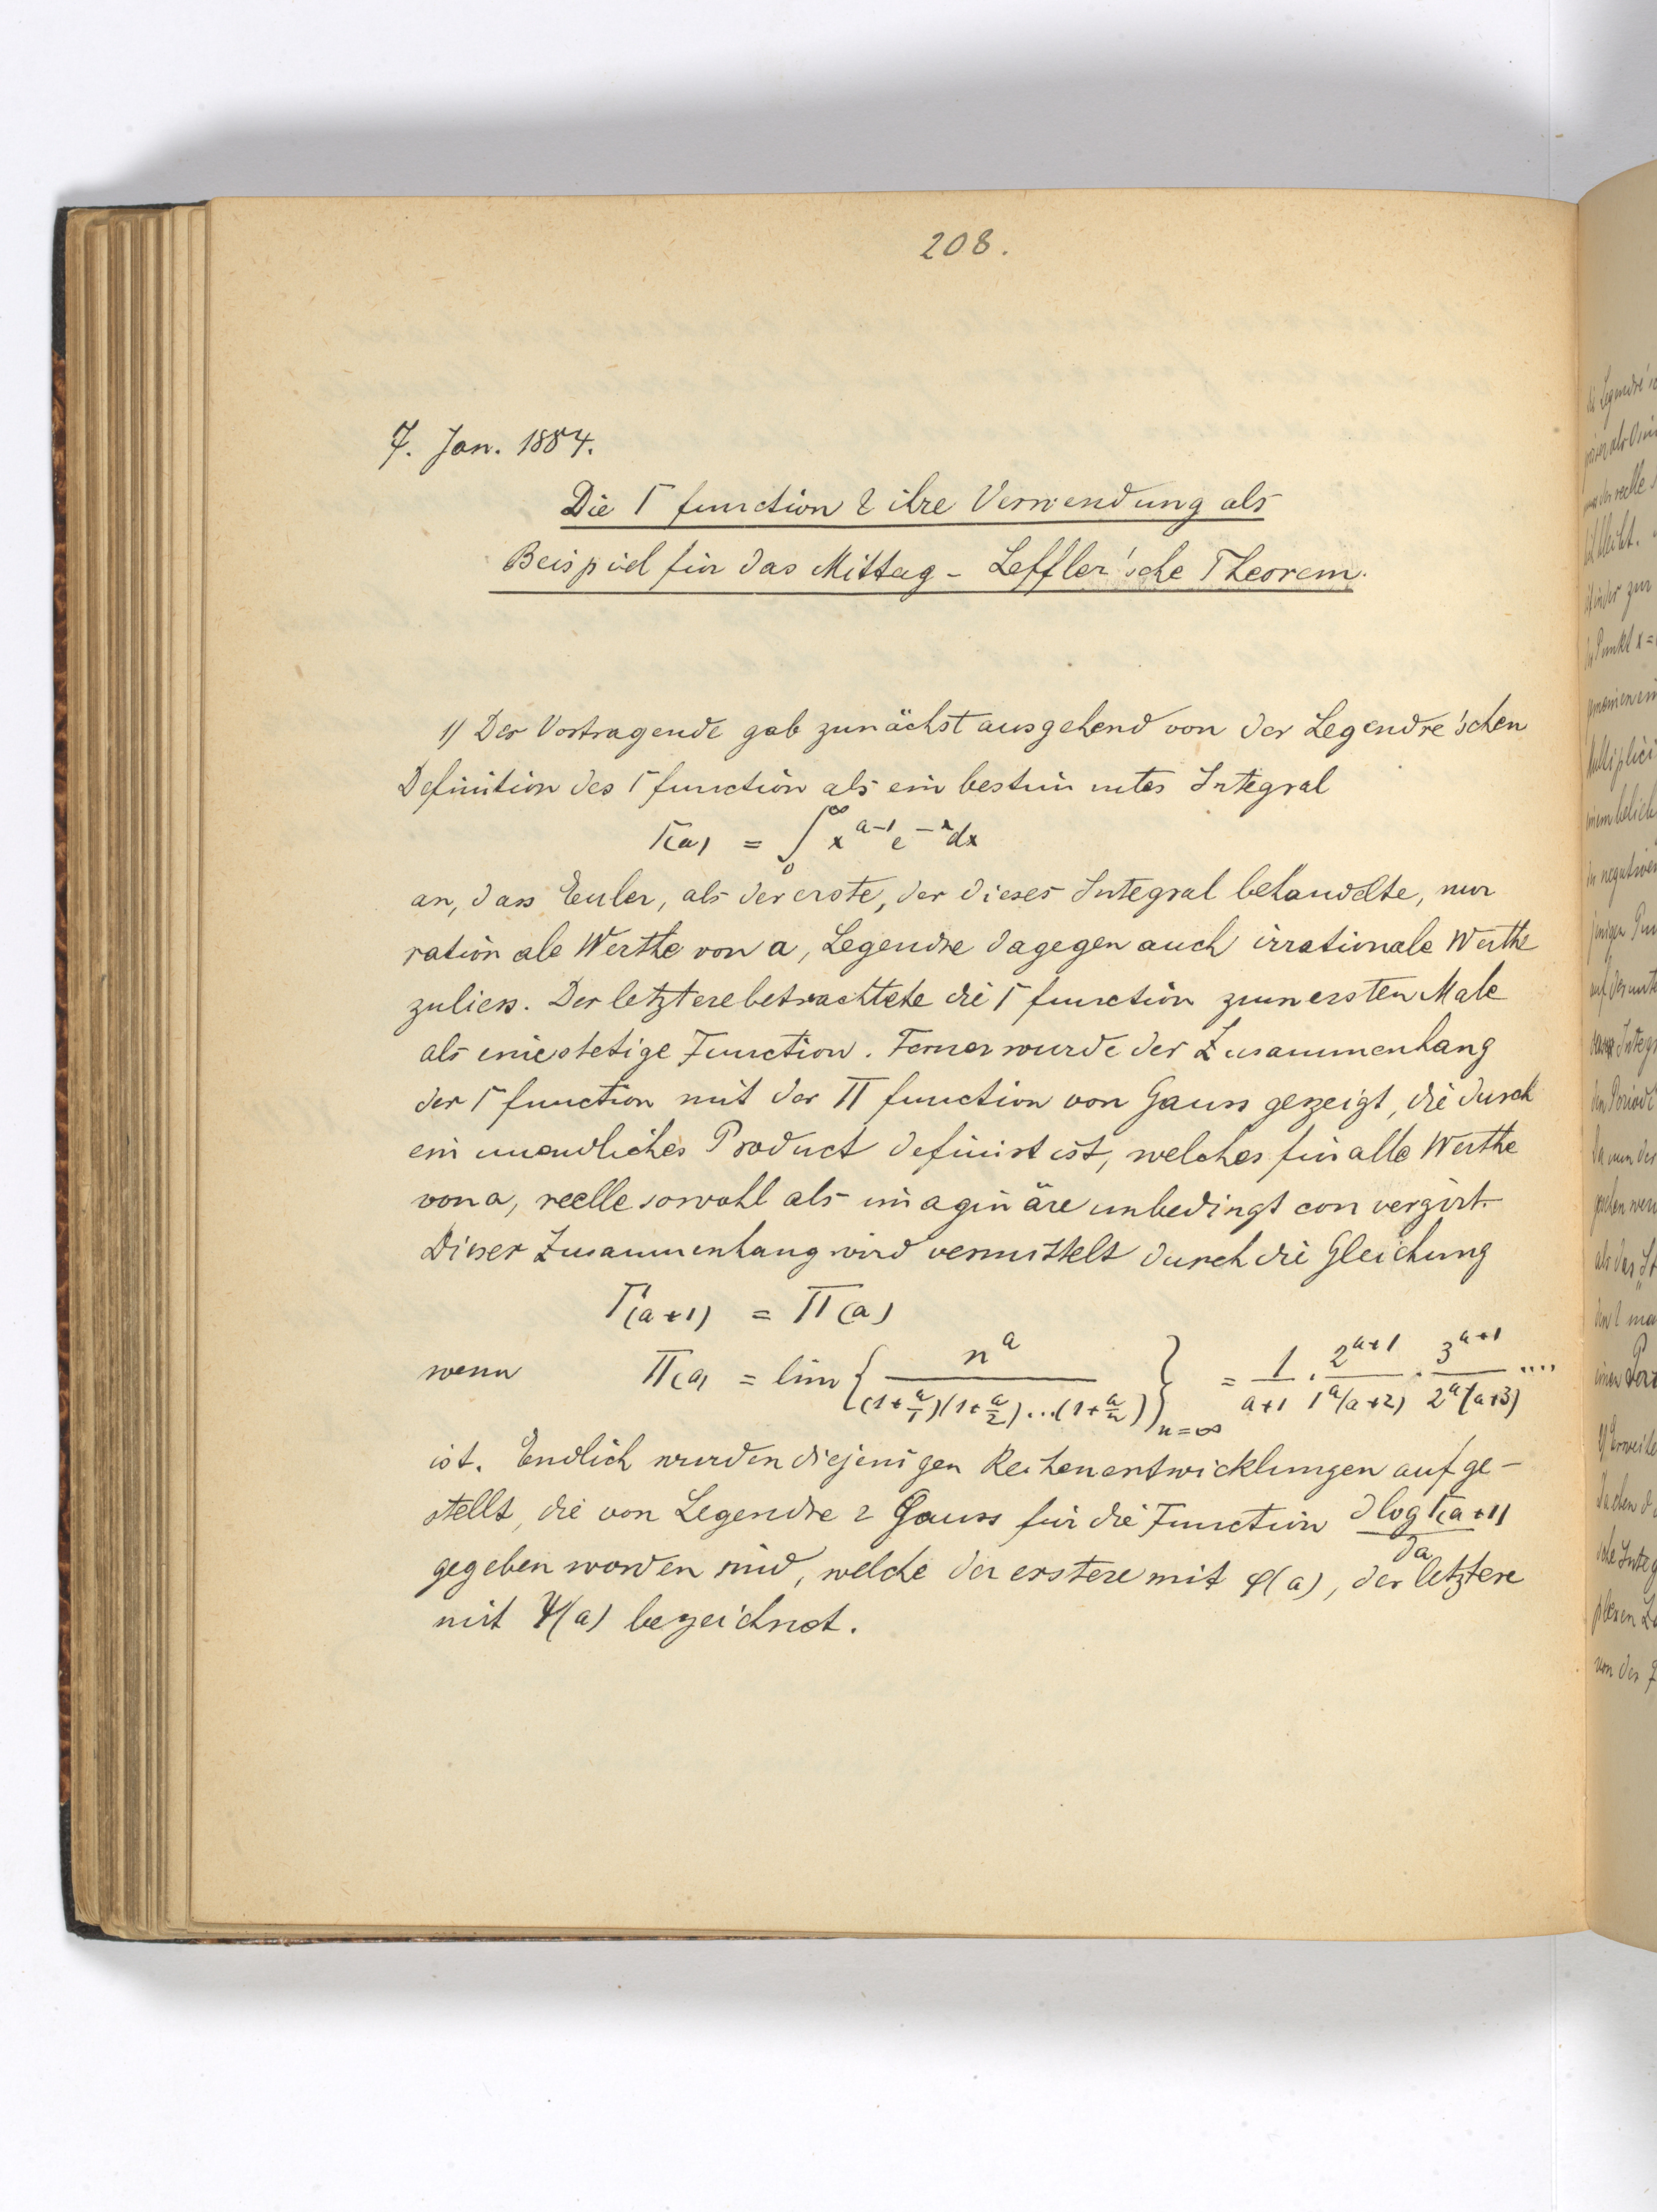 208.
7. Jan. 1884.
Die Γ function & ihre Verwendung als
Beispiel für das Mittag-Leffler'sche Theorem.
1) Der Vortragende gab zunächst ausgehend von der Legendre'schen
Definition der Γ function als ein bestimmtes Integral
Γ(a) = ∫₀^∞ x^{a-1} e^{-x} dx
an, dass Euler, als der erste, der dieses Integral behandelte, nur
rationale Werthe von a, Legendre dagegen auch irrationale Werthe
zuliess. Der letztere betrachtete die Γ function zum ersten Male
als eine stetige Function. Ferner wurde der Zusammenhang
der Γ function mit der Π function von Gauss gezeigt, die durch
ein unendliches Product definirt ist, welches für alle Werthe
von a, reelle sowohl als imaginäre unbedingt convergirt.
Dieser Zusammenhang wird vermittelt durch die Gleichung
Γ(a+1) = Π(a)
wenn Π(a) = lim { n^a / ((1+a/1)(1+a/2)...(1+a/n)) }_{n=∞} = 1/(a+1) · 2^{a+1}/(1^a(a+2)) · 3^{a+1}/(2^a(a+3)) ....
ist. Endlich wurden diejenigen Reihenentwicklungen aufge-
stellt, die von Legendre & Gauss für die Function ∂log Γ(a+1)/∂a
gegeben worden sind, welche der erstere mit φ(a), der letztere
mit Ψ(a) bezeichnet.